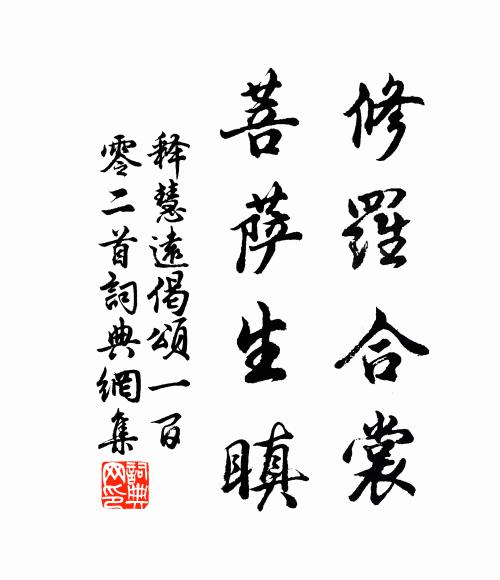 修羅合裳
菩薩生瞋
释慧遠偈頌一百
零二首詞典網集
詞典
网印